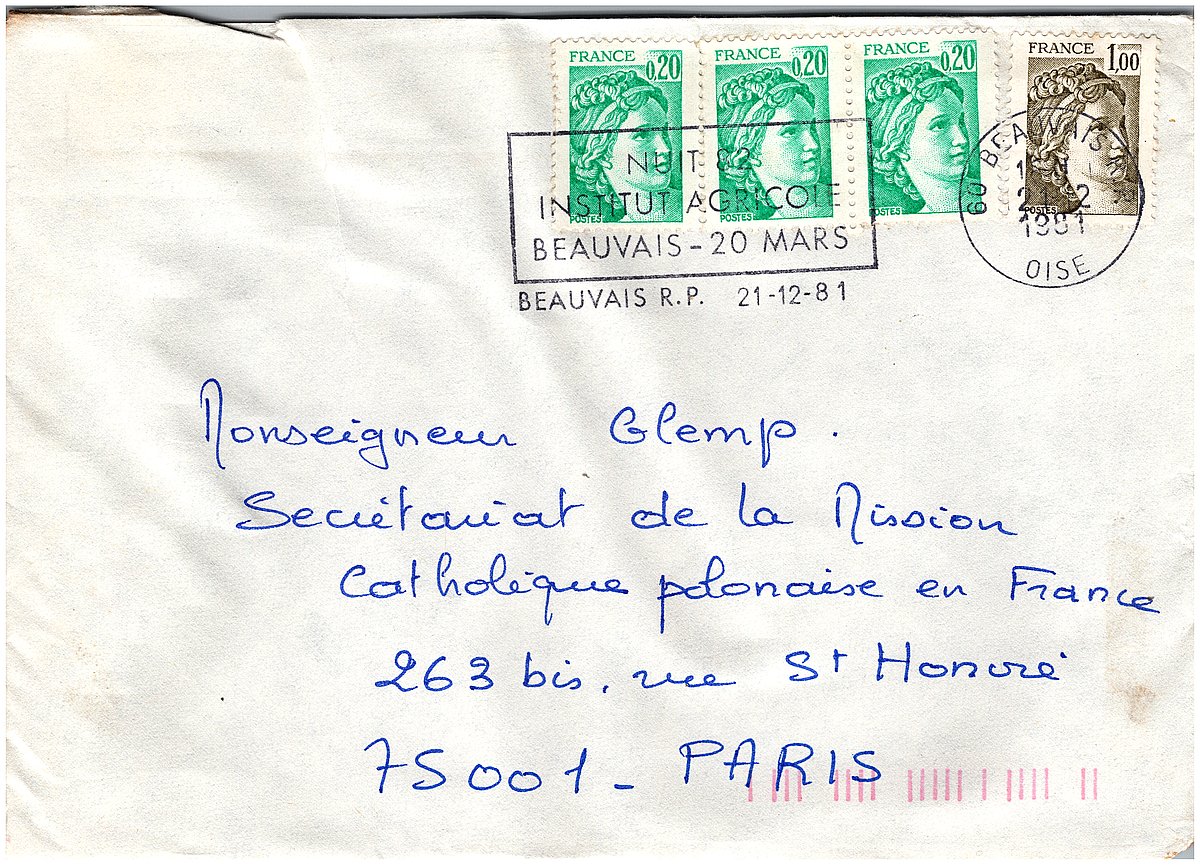 FRANCE 0,20
POSTES
FRANCE 0,20
POSTES
FRANCE 0,20
POSTES
FRANCE 1,00
POSTES
NUIT 82
INSTITUT AGRICOLE
BEAUVAIS - 20 MARS
BEAUVAIS R.P. 21-12-81
60 BEAUVAIS R.P.
1981
OISE
Monseigneur Glemp.
Secrétariat de la Mission
Catholique polonaise en France
263 bis, rue St Honoré
75001 - PARIS